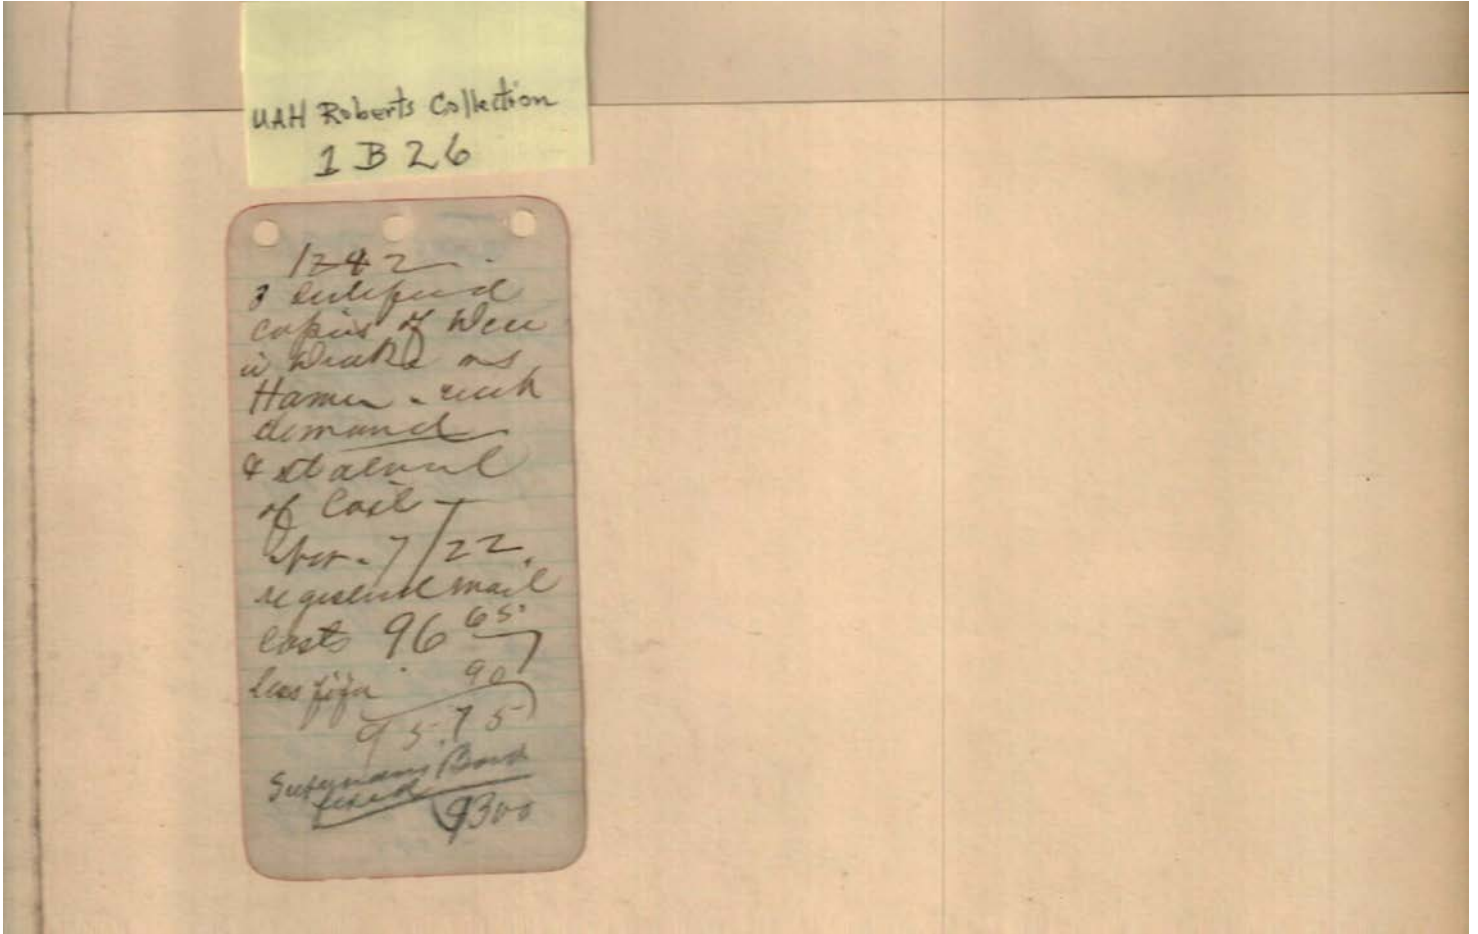 UAH Roberts Collection
1 B 26
1242
3 certified
copies of Decree
in Drake vs
Hamer - each
demand
& statement
of Cost -
Apr. 7/22
registered mail
Costs 96 65
Less fifa 90
95.75
Bond
fixed
9300